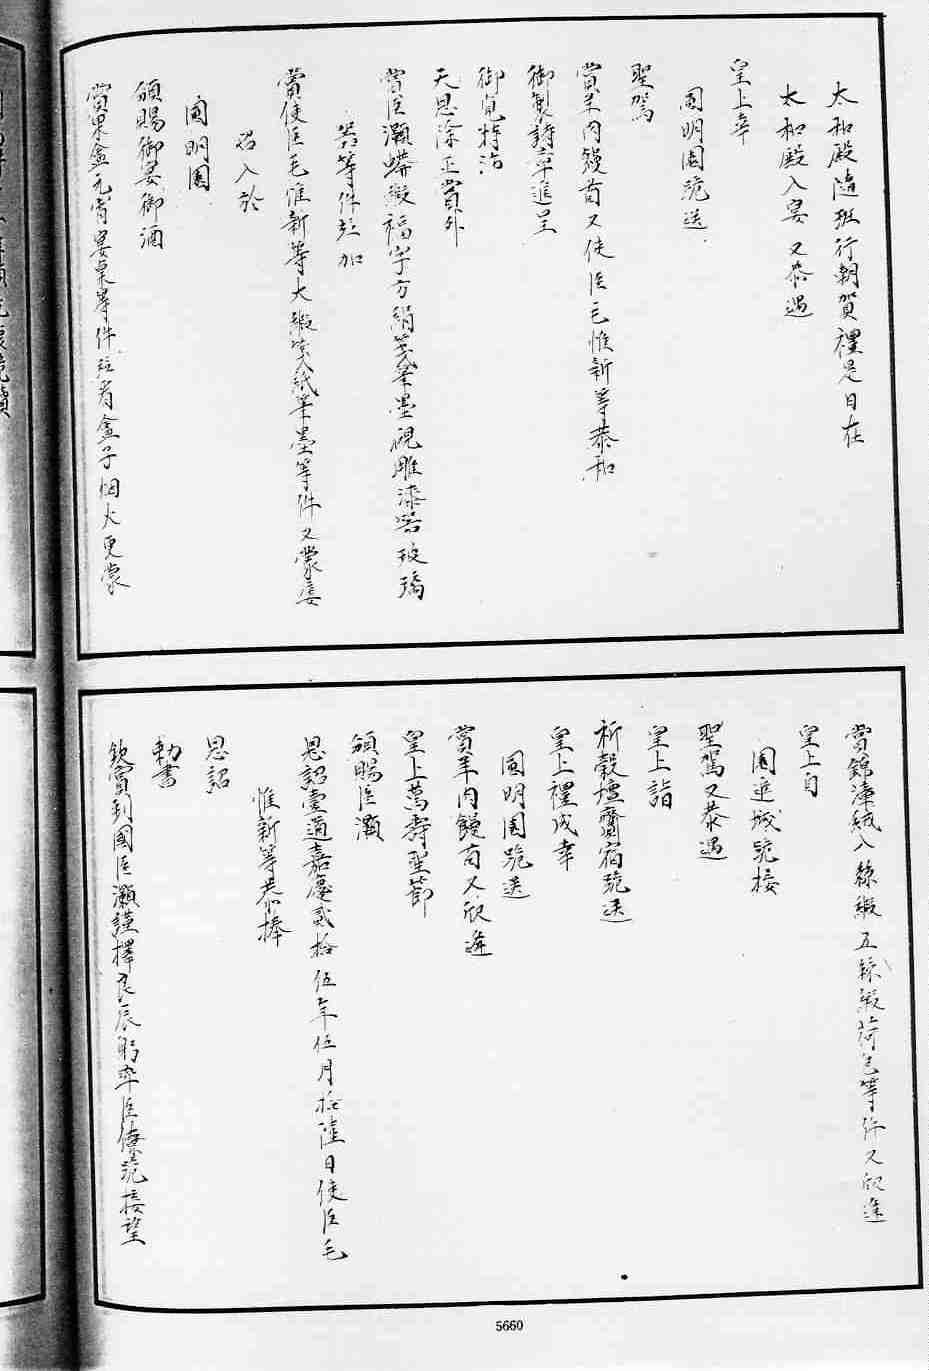 太和殿隨班行朝賀禮是日在
太和殿入宴又恭遇
皇上幸
圓明園跪送
聖駕
賞羊肉饅首又使臣毛惟新等恭和
御製詩章進呈
御覽特沾
天恩除正賞外
賞臣灝蟒緞福字方絹箋筆墨硯雕漆器玻璃
器等件竝加
賞使臣毛惟新等大緞箋紙筆墨等件又蒙
召入於
圓明園
頒賜御宴御酒
賞果盒元宵宴桌等件竝看盒子烟火更蒙
賞錦漳絨八絲緞五絲緞荷包等件又欣逢
皇上自
園進城跪接
聖駕又恭遇
皇上詣
祈穀壇齋宿跪送
皇上禮成幸
圓明園跪送
賞羊肉饅首又欣逢
皇上萬壽聖節
頒賜臣灝
恩詔壹通嘉慶貳拾伍年伍月拾陸日使臣毛
惟新等恭捧
恩詔
勅書
欽賞到國臣灝謹擇良辰躬率臣僚跪接望
5660